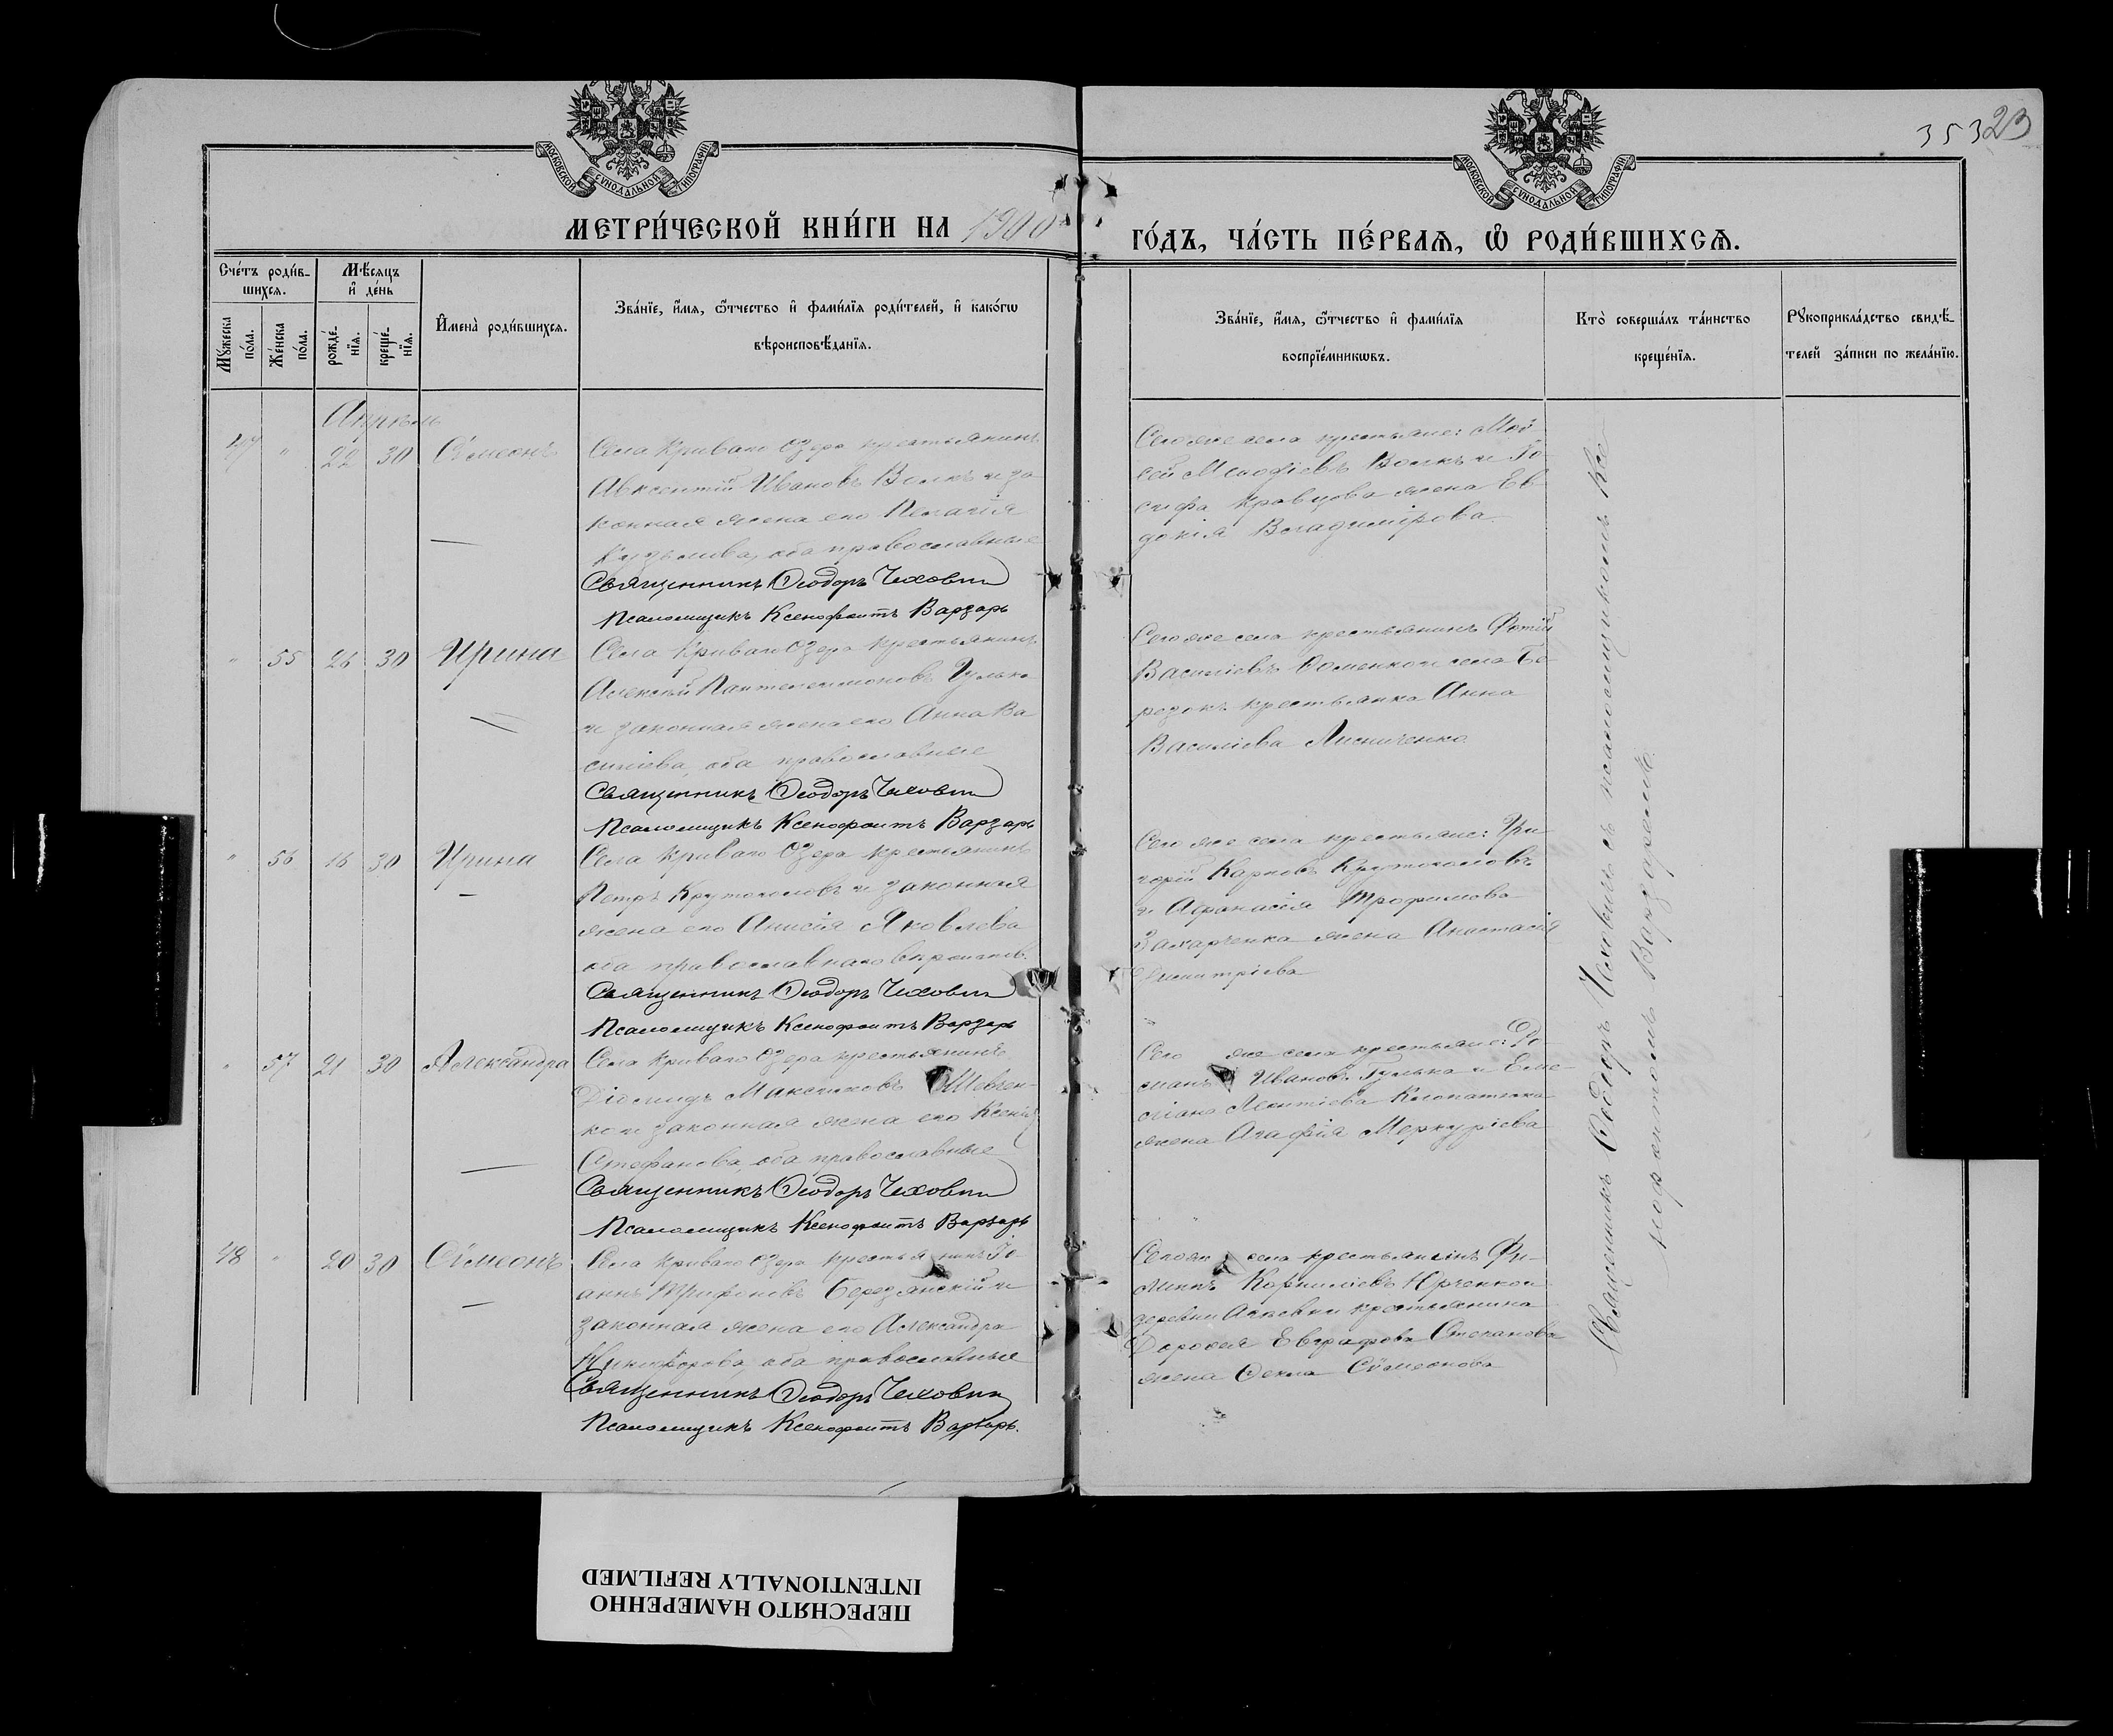 35323
МОСКОВСКОЙ СУНОДАЛЬНОЙ ТИПОГРАФІИ
МОСКОВСКОЙ СУНОДАЛЬНОЙ ТИПОГРАФІИ
МЕТРИ́ЧЕСКОЙ КНИ́ГИ НА 1900
ГО́ДЪ, ЧА́СТЬ ПЕ́РВАѦ, Ѽ РОДИ́ВШИХСѦ.
Сче́тъ роди́в-
шихсѧ.
Мꙋжеска
по́ла.
Же́нска
по́ла.
Мѣ́сѧцъ
и҆ де́нь
рожде́-
нїѧ.
креще́-
нїѧ.
И҆мена̀ роди́вшихсѧ.
Зва́нїе, и҆́мѧ, ѻ҆́тчество и҆ фами́лїѧ роди́телей, и҆ како́гѡ
вѣроисповѣ́данїѧ.
Зва́нїе, и҆́мѧ, ѻ҆́тчество и҆ фами́лїѧ
воспрїе́мникѡвъ.
Кто̀ соверша́лъ та́инство
креще́нїѧ.
Рꙋкоприкла́дство свидѣ́-
телей за́писи по жела́нїю.
Апрѣль
47 " 22 30 Сѵмеонъ
Села Криваго Озера крестьянинъ
Авксентій Ивановъ Волкъ и за
конная жена его Пелагія
Кузьмова, оба православные
Священникъ Ѳеодоръ Чехович
Псаломщикъ Ксенофонтъ Варзарь
Сего же села крестьяне: Мой
сей Меѳодіевъ Волкъ и Іо
сифа Кравцова жена Ев
докія Владимірова.
" 55 26 30 Ирина
Села Криваго Озера крестьянинъ
Алексѣй Пантелеимоновъ Гулька
и законная жена его Анна Ва
силіева, оба православные
Священникъ Ѳеодоръ Чехович
Псаломщикъ Ксенофонтъ Варзарь
Сего же села крестьянинъ Фотій
Василіевъ Фоменко и села Бе-
резокъ крестьянка Анна
Василіева Лисниченко
" 56 16 30 Ирина
Села Криваго Озера крестьянинъ
Петръ Крутохолов и законная
жена его Анисія Яковлева
оба православнаго
Священникъ Ѳеодоръ Чехович
Псаломщикъ Ксенофонтъ Варзарь
Сего же села крестьяне: Гри
горій Карповъ Крутохоловъ
и Афанасія Трофимова
Захарченка жена Анастасія
Димитріева
" 57 21 30 Александра
Села Криваго Озера крестьянинъ
Діомидъ Максимовъ Шевчен-
ко и законная жена его Ксенія
Стефанова, оба православные
Священникъ Ѳеодоръ Чехович
Псаломщикъ Ксенофонтъ Варзарь
Сего же села крестьяне: Ро-
манъ Ивановъ Гулька и Еме-
ліана Леонтіева Клопатенка
жена Агафія Меркуріева
48 " 20 30 Сѵмеонъ
Села Криваго Озера крестьянинъ Іо
аннъ Трифоновъ Березанскій и
законная жена его Александра
Никифорова, оба православные
Священникъ Ѳеодоръ Чехович
Псаломщикъ Ксенофонтъ Варзарь.
села крестьянинъ Фи-
липпъ Корниліевъ Юрченко и
деревни крестьянина
Дороѳея Евграфова Степанова
жена Ѳекла Сѵмеонова
Священникъ Ѳеодоръ Чехович съ псаломщикомъ Ксе-
нофонтомъ Варзаремъ.
ПЕРЕСНЯТО НАМЕРЕННО
INTENTIONALLY REFILMED